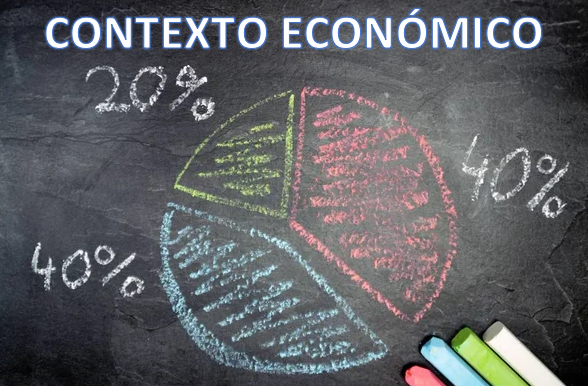 CONTEXTO ECONÓMICO
20%
40%
40%